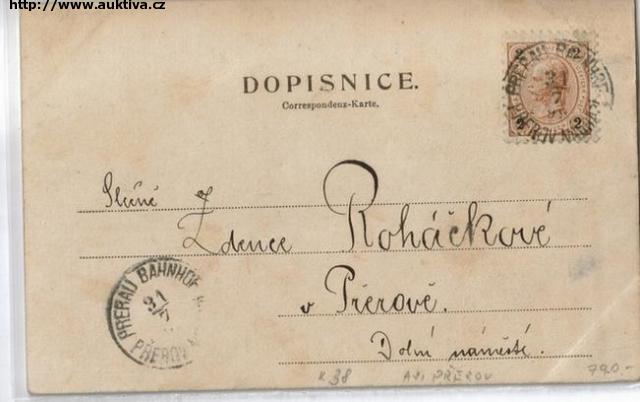 http://www.auktiva.cz
DOPISNICE.
Correspondenz-Karte.
2 2
PRERAU BAHNHOF
31
7
2 2
Slečně
Zdence Roháčkové
v Přerově.
Dolní náměstí.
PRERAU BAHNHOF
31
7
PŘEROV
K 38 PŘEROV 790-